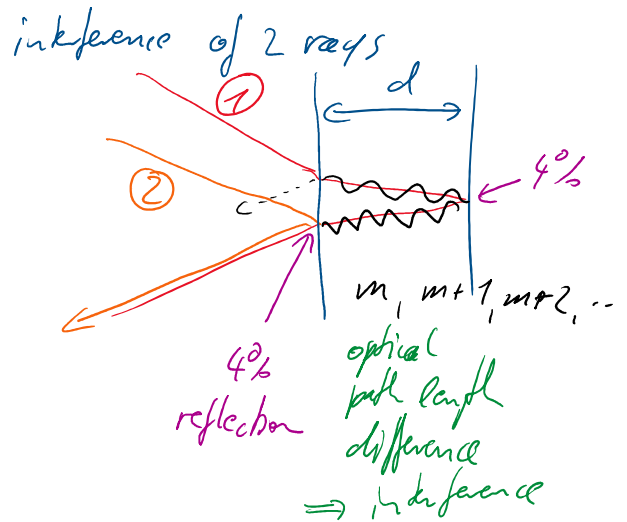 interference of 2 rays
1
d
2
4%
m, m+1, m+2, ...
4%
reflection
optical
path length
difference
⇒ interference